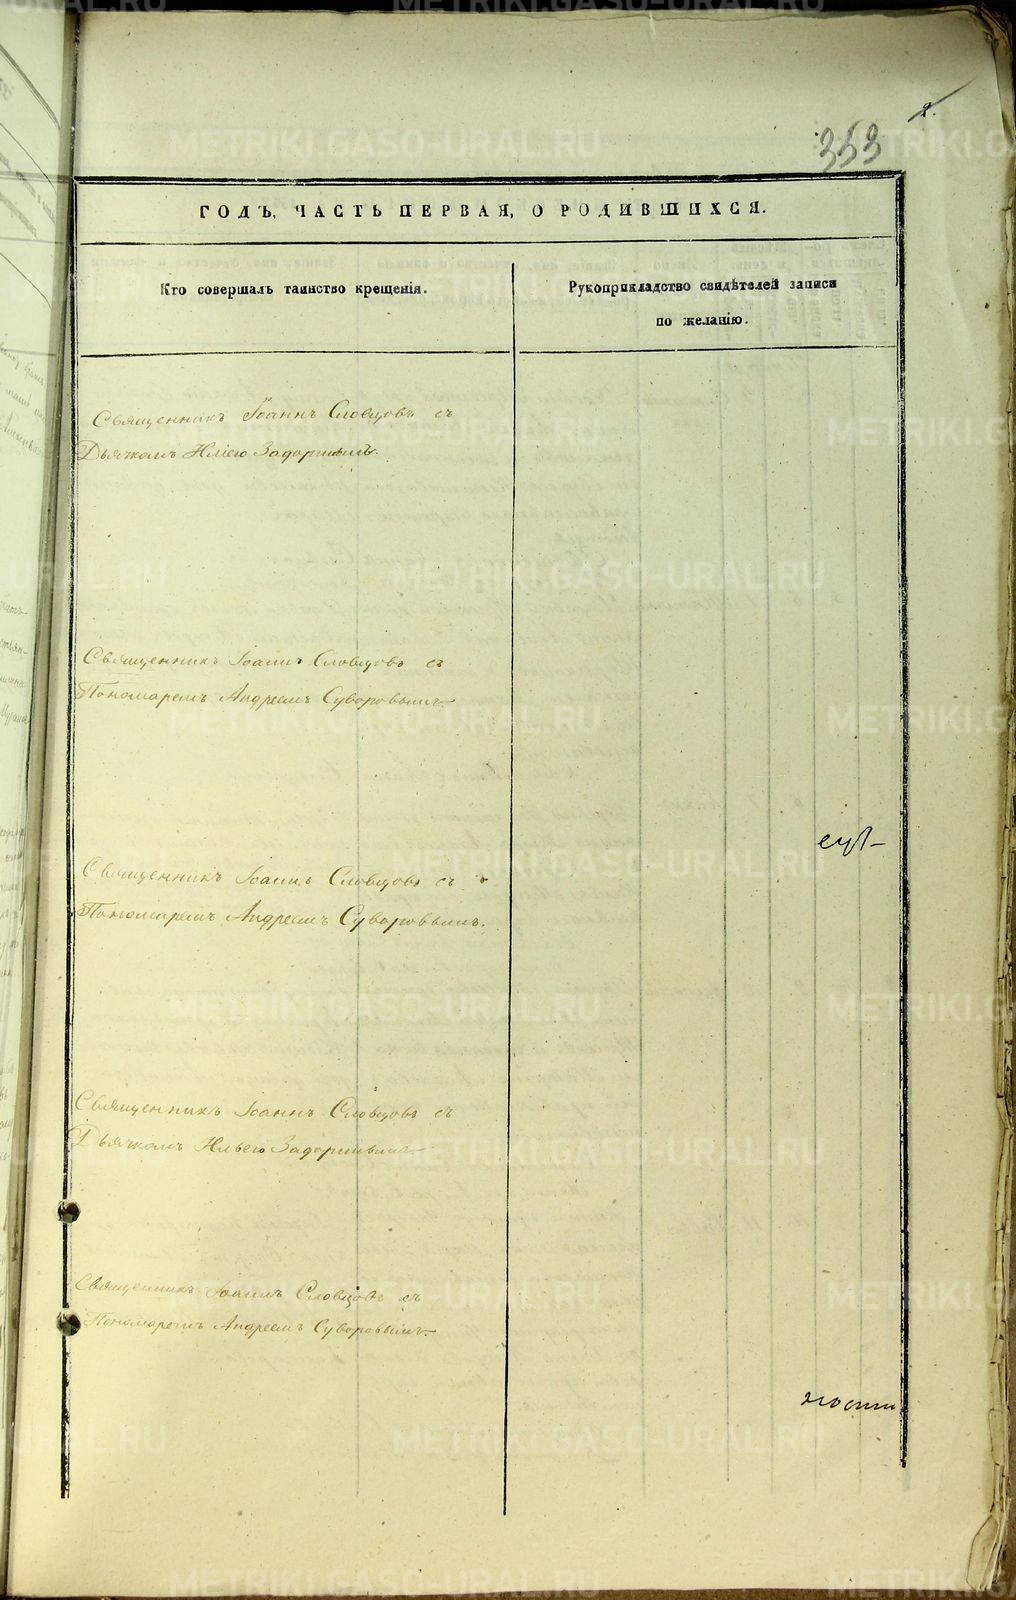 2.
353
ГОДЪ, ЧАСТЬ ПЕРВАЯ, О РОДИВШИХСЯ.
Кто совершалъ таинство крещенія.
Рукоприкладство свидѣтелей записи
по желанію.
Священникъ Іоаннъ Словцовъ съ
Дьячкомъ Иліею Задоринымъ.
Священникъ Іоаннъ Словцовъ съ
Пономаремъ Андреемъ Суворовымъ.
Священникъ Іоаннъ Словцовъ съ
Пономаремъ Андреемъ Суворовымъ.
Священникъ Іоаннъ Словцовъ съ
Дьячкомъ Ильею Задоринымъ.
Священникъ Іоаннъ Словцовъ съ
Пономаремъ Андреемъ Суворовымъ.
METRIKI.GASO-URAL.RU